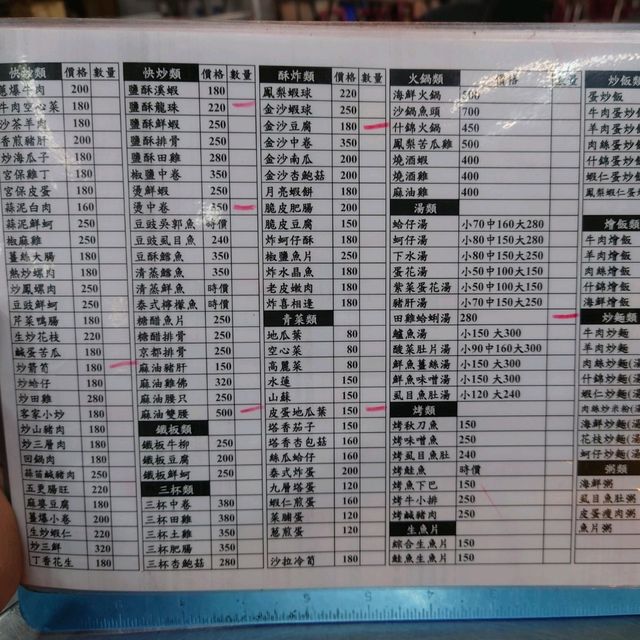 快炒類 價格 數量
蔥爆牛肉 200
牛肉空心菜 180
沙茶羊肉 180
香煎豬肝 200
炒海瓜子 180
宮保雞丁 180
宮保皮蛋 180
蒜泥白肉 160
蒜泥鮮蚵 250
椒麻雞 250
薑絲大腸 180
熱炒螺肉 180
炒鳳螺肉 250
豆豉鮮蚵 250
芹菜鴨腸 180
生炒花枝 220
鹹蛋苦瓜 180
炒箭筍 180
炒蛤仔 180
炒田雞 280
客家小炒 180
炒山豬肉 180
炒三層肉 180
回鍋肉 180
蒜苗鹹豬肉 250
五更腸旺 220
麻婆豆腐 180
薑爆小卷 200
生炒蝦仁 220
炒三鮮 320
丁香花生 180
快炒類 價格 數量
鹽酥溪蝦 180
鹽酥龍珠 220
鹽酥鮮蝦 250
鹽酥排骨 250
鹽酥田雞 280
椒鹽中卷 350
燙鮮蝦 250
燙中卷 350
豆豉吳郭魚 時價
豆豉虱目魚 240
豆酥鱈魚 350
清蒸鱈魚 350
清蒸鮮魚 時價
泰式檸檬魚 時價
糖醋魚片 250
糖醋排骨 250
京都排骨 250
麻油豬肝 150
麻油雞佛 320
麻油腰只 250
麻油雙腰 500
鐵板類
鐵板牛柳 250
鐵板豆腐 200
鐵板鮮蚵 250
三杯類
三杯中卷 380
三杯田雞 380
三杯土雞 350
三杯肥腸 350
三杯杏鮑菇 280
酥炸類 價格 數量
鳳梨蝦球 220
金沙蝦球 250
金沙豆腐 180
金沙中卷 350
金沙南瓜 200
金沙杏鮑菇 200
月亮蝦餅 180
脆皮肥腸 200
脆皮豆腐 150
炸蚵仔酥 180
椒鹽魚片 250
炸水晶魚 180
老皮嫩肉 180
炸喜相逢 180
青菜類
地瓜葉 80
空心菜 80
高麗菜 80
水蓮 150
山蘇 150
皮蛋地瓜葉 150
塔香茄子 150
塔香杏包菇 160
絲瓜蛤仔 160
泰式炸蛋 200
九層塔蛋 120
蝦仁煎蛋 160
菜脯蛋 120
蔥煎蛋 120
沙拉冷筍 180
火鍋類 價格 數量
海鮮火鍋 500
沙鍋魚頭 700
什錦火鍋 450
鳳梨苦瓜雞 500
燒酒蝦 400
燒酒雞 400
麻油雞 400
湯類
蛤仔湯 小70中160大280
蚵仔湯 小80中150大280
下水湯 小80中150大280
蛋花湯 小50中100大150
紫菜蛋花湯 小50中100大150
豬肝湯 小70中150大250
田雞蛤蜊湯 280
鱸魚湯 小150 大300
酸菜肚片湯 小90中160大300
鮮魚薑絲湯 小150 大300
鮮魚味噌湯 小150 大300
虱目魚肚湯 小120 大240
烤類
烤秋刀魚 150
烤味噌魚 250
烤虱目魚肚 240
烤鮭魚 時價
烤魚下巴 150
烤牛小排 250
烤鹹豬肉 250
生魚片
綜合生魚片 150
鮭魚生魚片 150
炒飯類
蛋炒飯
牛肉蛋炒飯
羊肉蛋炒飯
肉絲蛋炒飯
什錦蛋炒飯
蝦仁蛋炒飯
鳳梨蝦仁蛋
燴飯類
牛肉燴飯
羊肉燴飯
肉絲燴飯
什錦燴飯
海鮮燴飯
炒麵類
牛肉炒麵
羊肉炒麵
肉絲炒麵(
什錦炒麵(
蝦仁炒麵(
肉絲炒米粉(
海鮮炒麵(
花枝炒麵(
蚵仔炒麵(
粥類
海鮮粥
虱目魚肚粥
皮蛋瘦肉粥
魚片粥